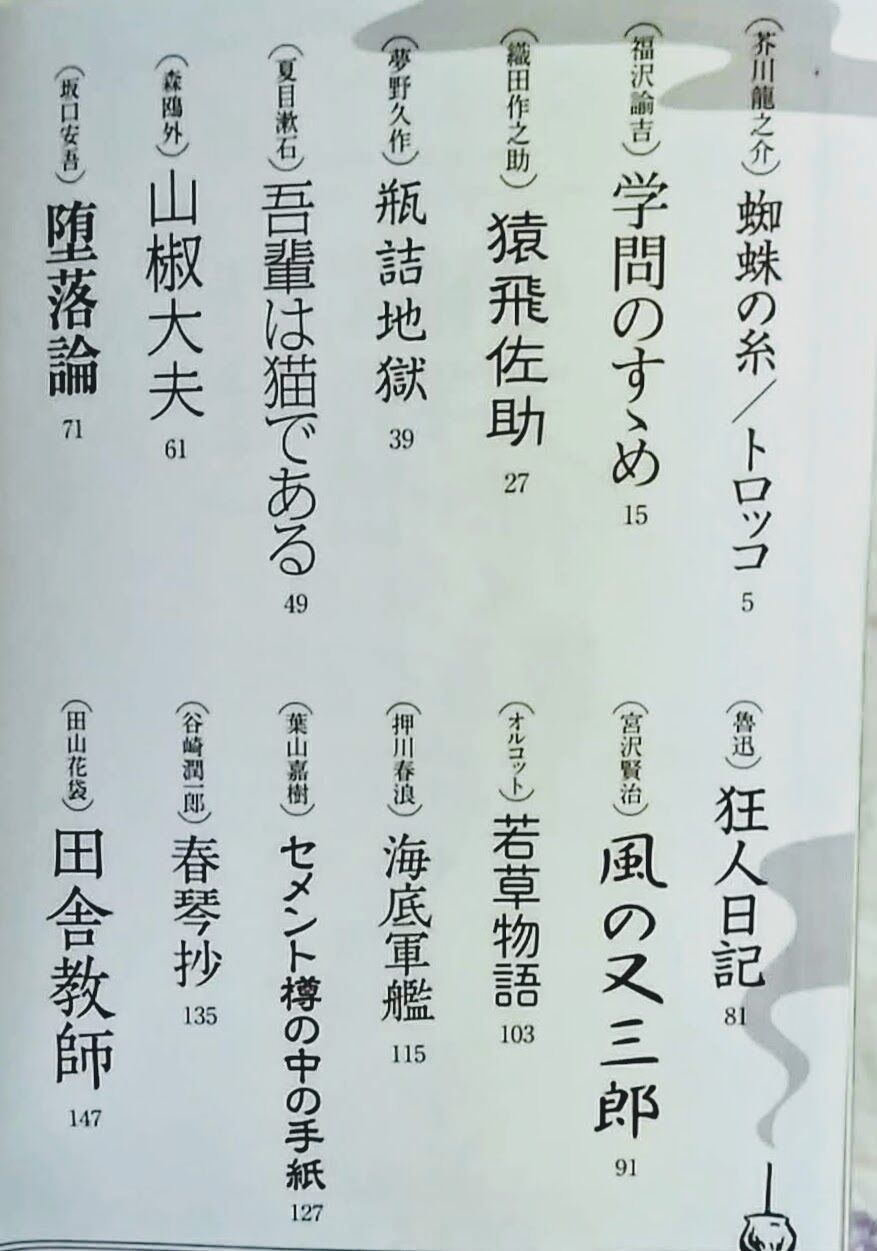 （芥川龍之介）蜘蛛の糸／トロッコ 5
（福沢諭吉）学問のすゝめ 15
（織田作之助）猿飛佐助 27
（夢野久作）瓶詰地獄 39
（夏目漱石）吾輩は猫である 49
（森鴎外）山椒大夫 61
（坂口安吾）堕落論 71
（魯迅）狂人日記 81
（宮沢賢治）風の又三郎 91
（オルコット）若草物語 103
（押川春浪）海底軍艦 115
（葉山嘉樹）セメント樽の中の手紙 127
（谷崎潤一郎）春琴抄 135
（田山花袋）田舎教師 147